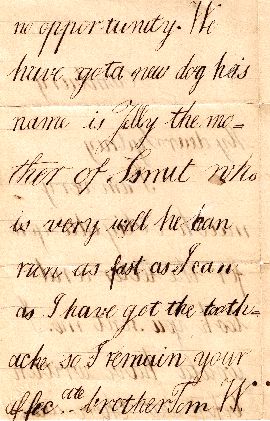 no opportunity. We
have got a new dog he's
name is Jilly the mo=
ther of Smut who
is very will he can
run as fast as I can
as I have got the tooth=
ache so I remain your
affec..ate brother Tom W.